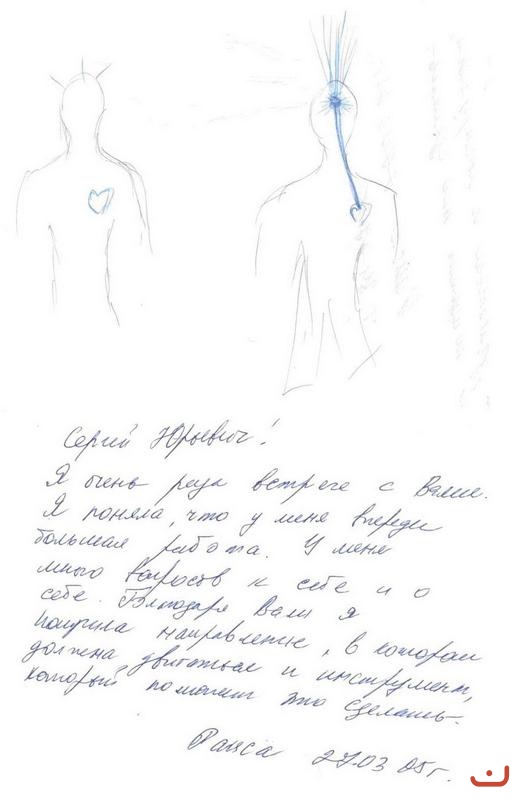 Сергей Юрьевич!
Я очень рада встрече с Вами.
Я поняла, что у меня впереди
большая работа. У меня
много вопросов к себе и о
себе. Благодаря Вам я
получила направление, в котором
должна двигаться и инструмент,
который поможет это сделать.
Раиса 27.03 05г.